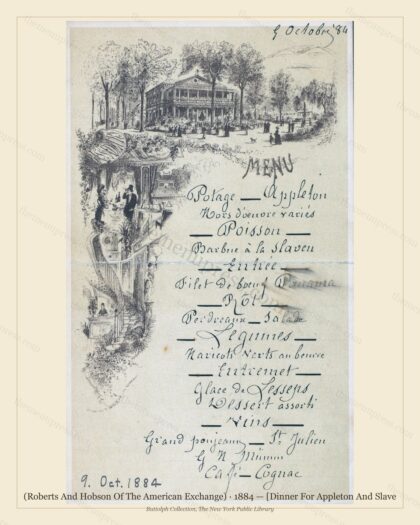 9 Octobre '84
MENU
Potage — Appleton
Hors d'oeuvre variés
— Poisson —
Barbue à la Slaven
— Entrée —
Filet de boeuf Panama
— Rôt —
Perdreaux — Salade
— Legumes —
Haricots Verts au beurre
— Entremet —
Glace de Lesseps
Dessert assorti
— Vins —
Grand ponjeaux — St Julien
G H Mumm
Café — Cognac
9. Oct. 1884
(Roberts And Hobson Of The American Exchange) · 1884 — [Dinner For Appleton And Slave
Buttolph Collection, The New York Public Library